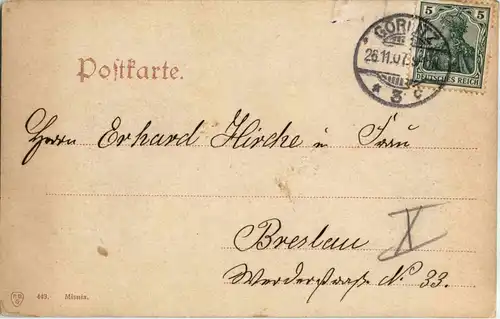 Postkarte.
GÖRLITZ
26.11.07.
* 3 c
5 5
DEUTSCHES REICH
Herrn Erhard Hircke u Frau
Breslau
X
Werderstraße No 33.
443. Mimosa.